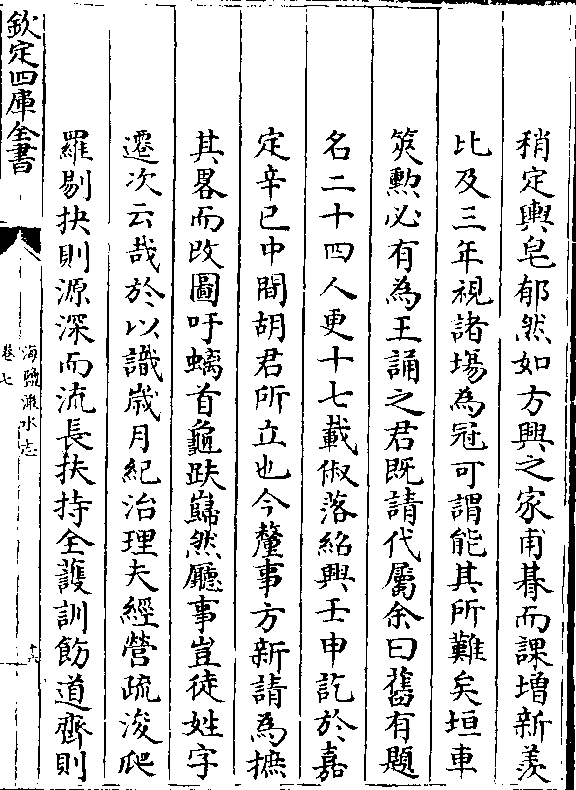 稍定輿皂郁然如方興之家甫朞而課增新羨
比及三年視諸場為冠可謂能其所難矣垣車
筴勲必有為王誦之君既請代屬余曰舊有題
名二十四人更十七載俶落紹興壬申訖於嘉
定辛巳中間胡君所立也今釐事方新請為摭
其畧而改圖吁螭首龜趺巋然廳事豈徒姓字
遷次云哉於以識嵗月紀治理夫經營疏浚爬
羅剔抉則源深而流長扶持全䕶訓飭道齊則
欽定四庫全書
海鹽澉水志
卷七
十六